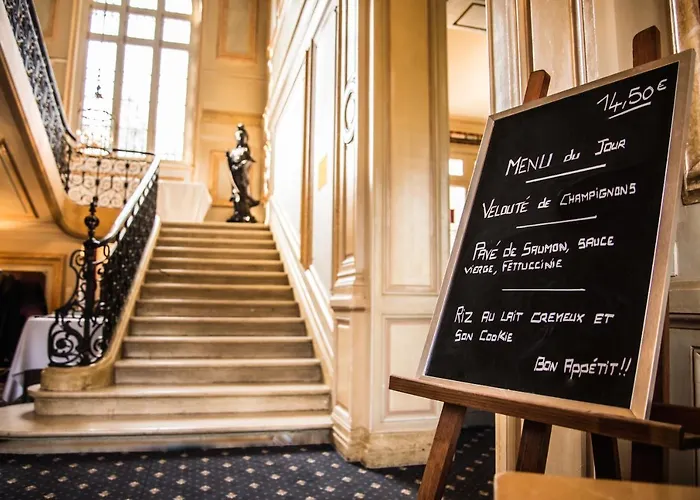 14,50€
MENU du JOUR
VELOUTÉ de CHAMPIGNONS
PAVÉ DE SAUMON, SAUCE
VIERGE, FETTUCCINIE
RIZ AU LAIT CREMEUX ET
SON COOKIE
BON APPÉTIT!!